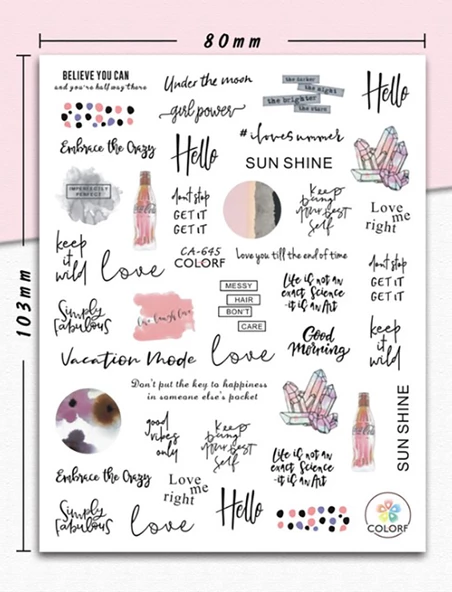 80mm
103mm
BELIEVE YOU CAN
and you're half way there
Under the moon
the darker
the night
the brighter
the stars
Hello
girl power
#ilovesummer
Embrace the Crazy
Hello
SUN SHINE
IMPERFECTLY
PERFECT
dont stop
GET IT
GET IT
Keep
being
Your best
Self
Love
me
right
keep
it
wild
love
CA-645
COLORF
love you till the end of time
dont stop
GET IT
GET IT
Simply
fabulous
live laugh love
MESSY
HAIR
DON'T
CARE
Life is not an
exact Science
-it is an Art
Good
Morning
keep
it
wild
Vacation Mode
love
Don't put the key to happiness
in someone else's pocket
good
vibes
only
Keep
being
Your best
Self
Life is not an
exact Science
-it is an Art
SUN SHINE
Embrace the Crazy
Love
me
right
Simply
fabulous
love
Hello
COLORF